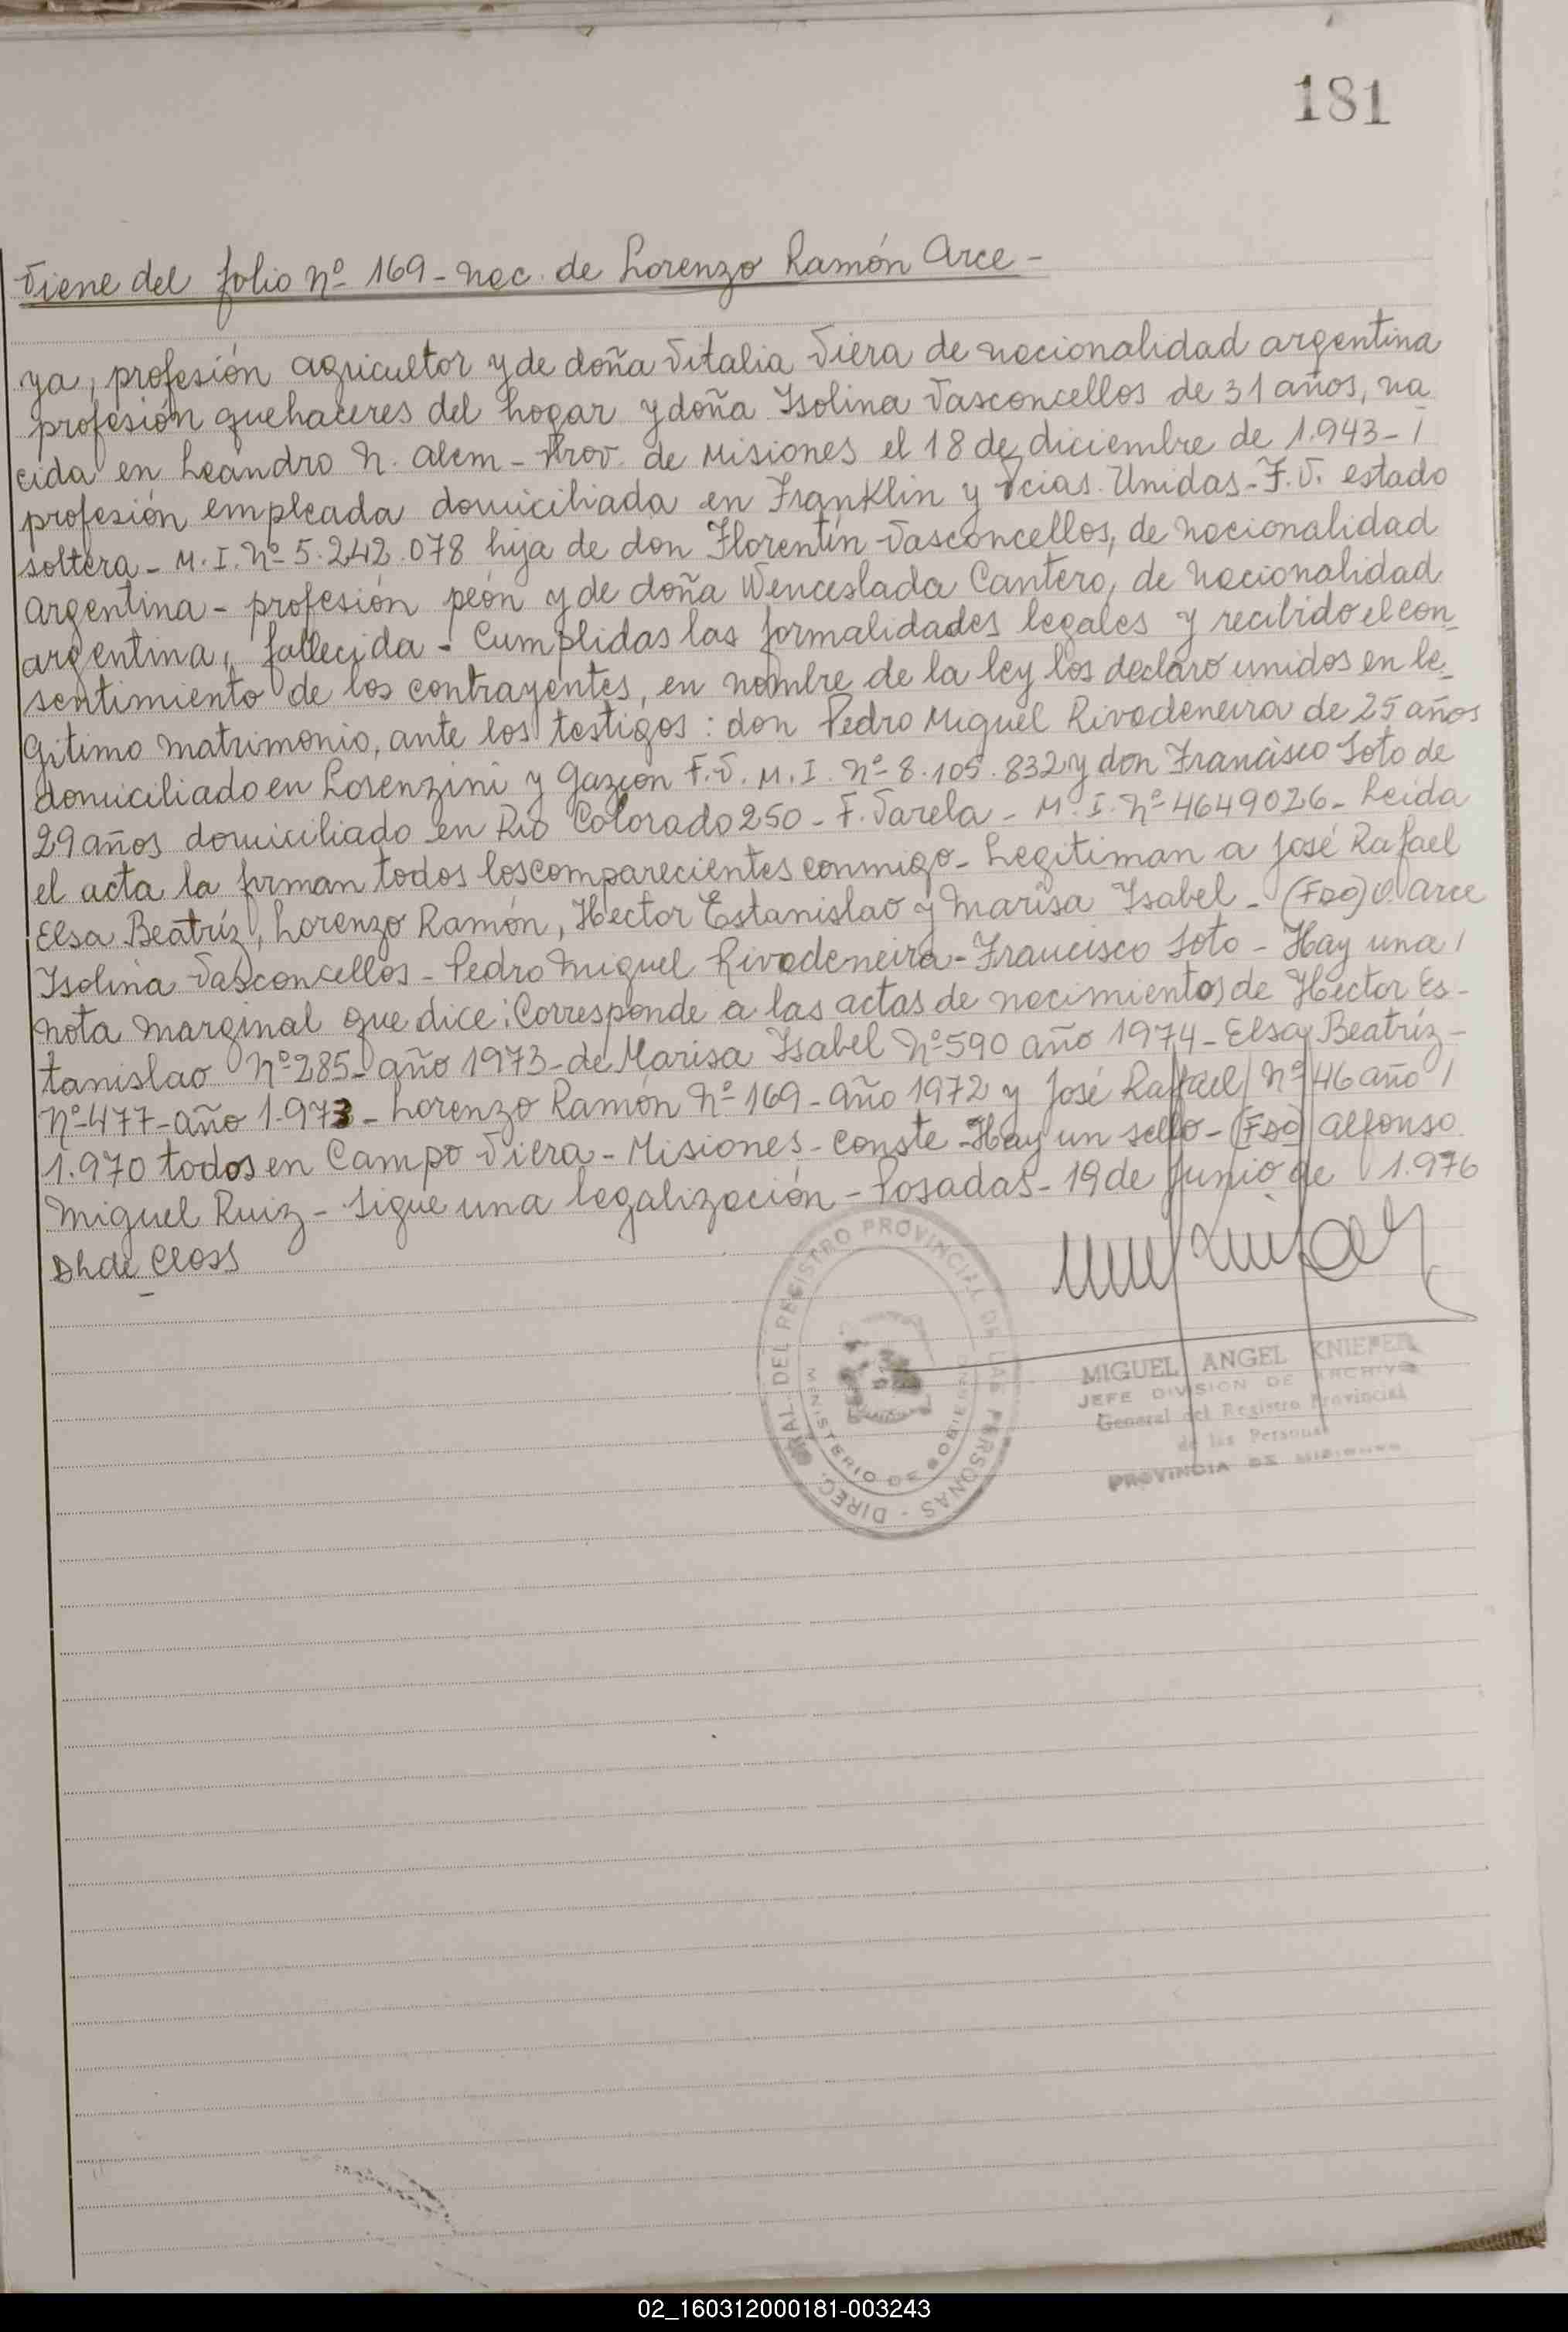 181
Viene del folio Nº 169 - nac. de Lorenzo Ramón Arce -
ya, profesión agricultor y de doña Vitalia Viera de nacionalidad argentina
profesión quehaceres del hogar y doña Isolina Vasconcellos de 31 años, na
cida en Leandro N. Alem - Prov. de Misiones el 18 de diciembre de 1.943 - /
profesión empleada domiciliada en Franklin y Pcias. Unidas - F.V. estado
soltera - M.I. Nº 5.242.078 hija de don Florentín Vasconcellos, de nacionalidad
Argentina - profesión peón y de doña Wenceslada Cantero, de nacionalidad
argentina, fallecida - Cumplidas las formalidades legales y recibido el con_
sentimiento de los contrayentes, en nombre de la ley los declaro unidos en le_
gitimo matrimonio, ante los testigos: don Pedro Miguel Rivadeneira de 25 años
domiciliado en Lorenzini y Gazcon F.V. M.I. Nº 8.105.832 y don Francisco Soto de
29 años domiciliado en Rio Colorado 250 - F. Varela - M.I. Nº 4649026 - Leida
el acta la firman todos los comparecientes conmigo - Legitiman a José Rafael
Elsa Beatríz, Lorenzo Ramón, Hector Estanislao y Marisa Isabel - (FDO) O. Arce
Isolina Vasconcellos - Pedro Miguel Rivadeneira - Francisco Soto - Hay una /
nota marginal que dice: Corresponde a las actas de nacimientos de Hector Es-
tanislao Nº 285 - año 1973 - de Marisa Isabel Nº 590 año 1974 - Elsa Beatríz -
Nº 477 - año 1.973 - Lorenzo Ramón Nº 169 - año 1972 y José Raffael Nº 46 año /
1.970 todos en Campo Viera - Misiones - Conste - Hay un sello - (FDO) Alfonso
Miguel Ruiz - Sigue una legalización - Posadas - 19 de Junio de 1.976
Dhde Closs
DIREC. GRAL. DEL REGISTRO PROVINCIAL DE LAS PERSONAS
MINISTERIO DE GOBIERNO
MIGUEL ANGEL KNIEFER
JEFE DIVISION DE ARCHIVO
General del Registro Provincial
de las Personas
PROVINCIA DE MISIONES
02_160312000181-003243